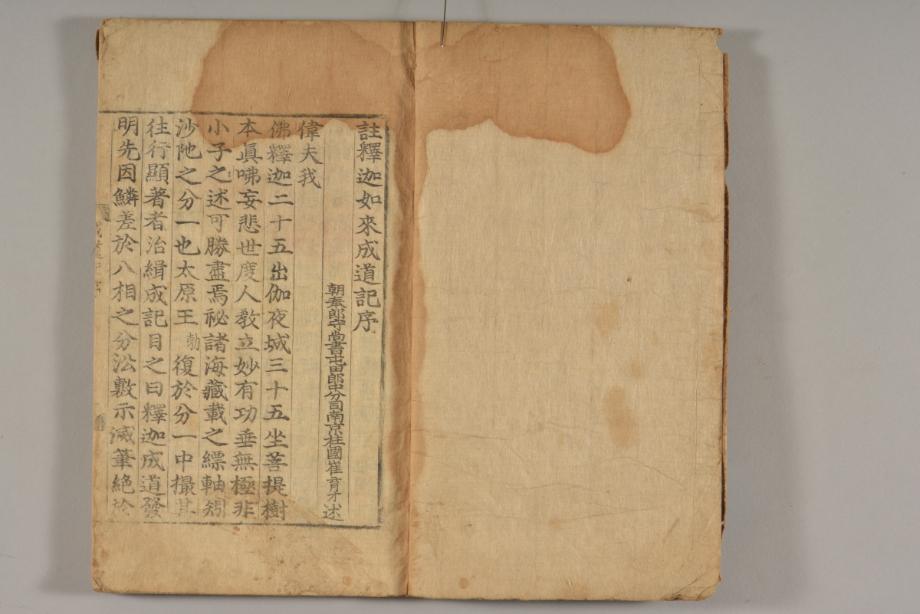 註釋迦如來成道記序
朝奉郎守尚書屯田郎中分司南京柱國崔育才述
偉夫我
佛釋迦二十五出伽夜城三十五坐菩提樹
本眞咈妄悲世度人敎立妙有功垂無極非
小子之述可勝盡焉秘諸海藏載之縹軸矧
沙陁之分一也太原王勃復於分一中撮其
往行顯著者治緝成記目之曰釋迦成道發
明先因鱗差於八相之分㳂敷示滅筆絶於